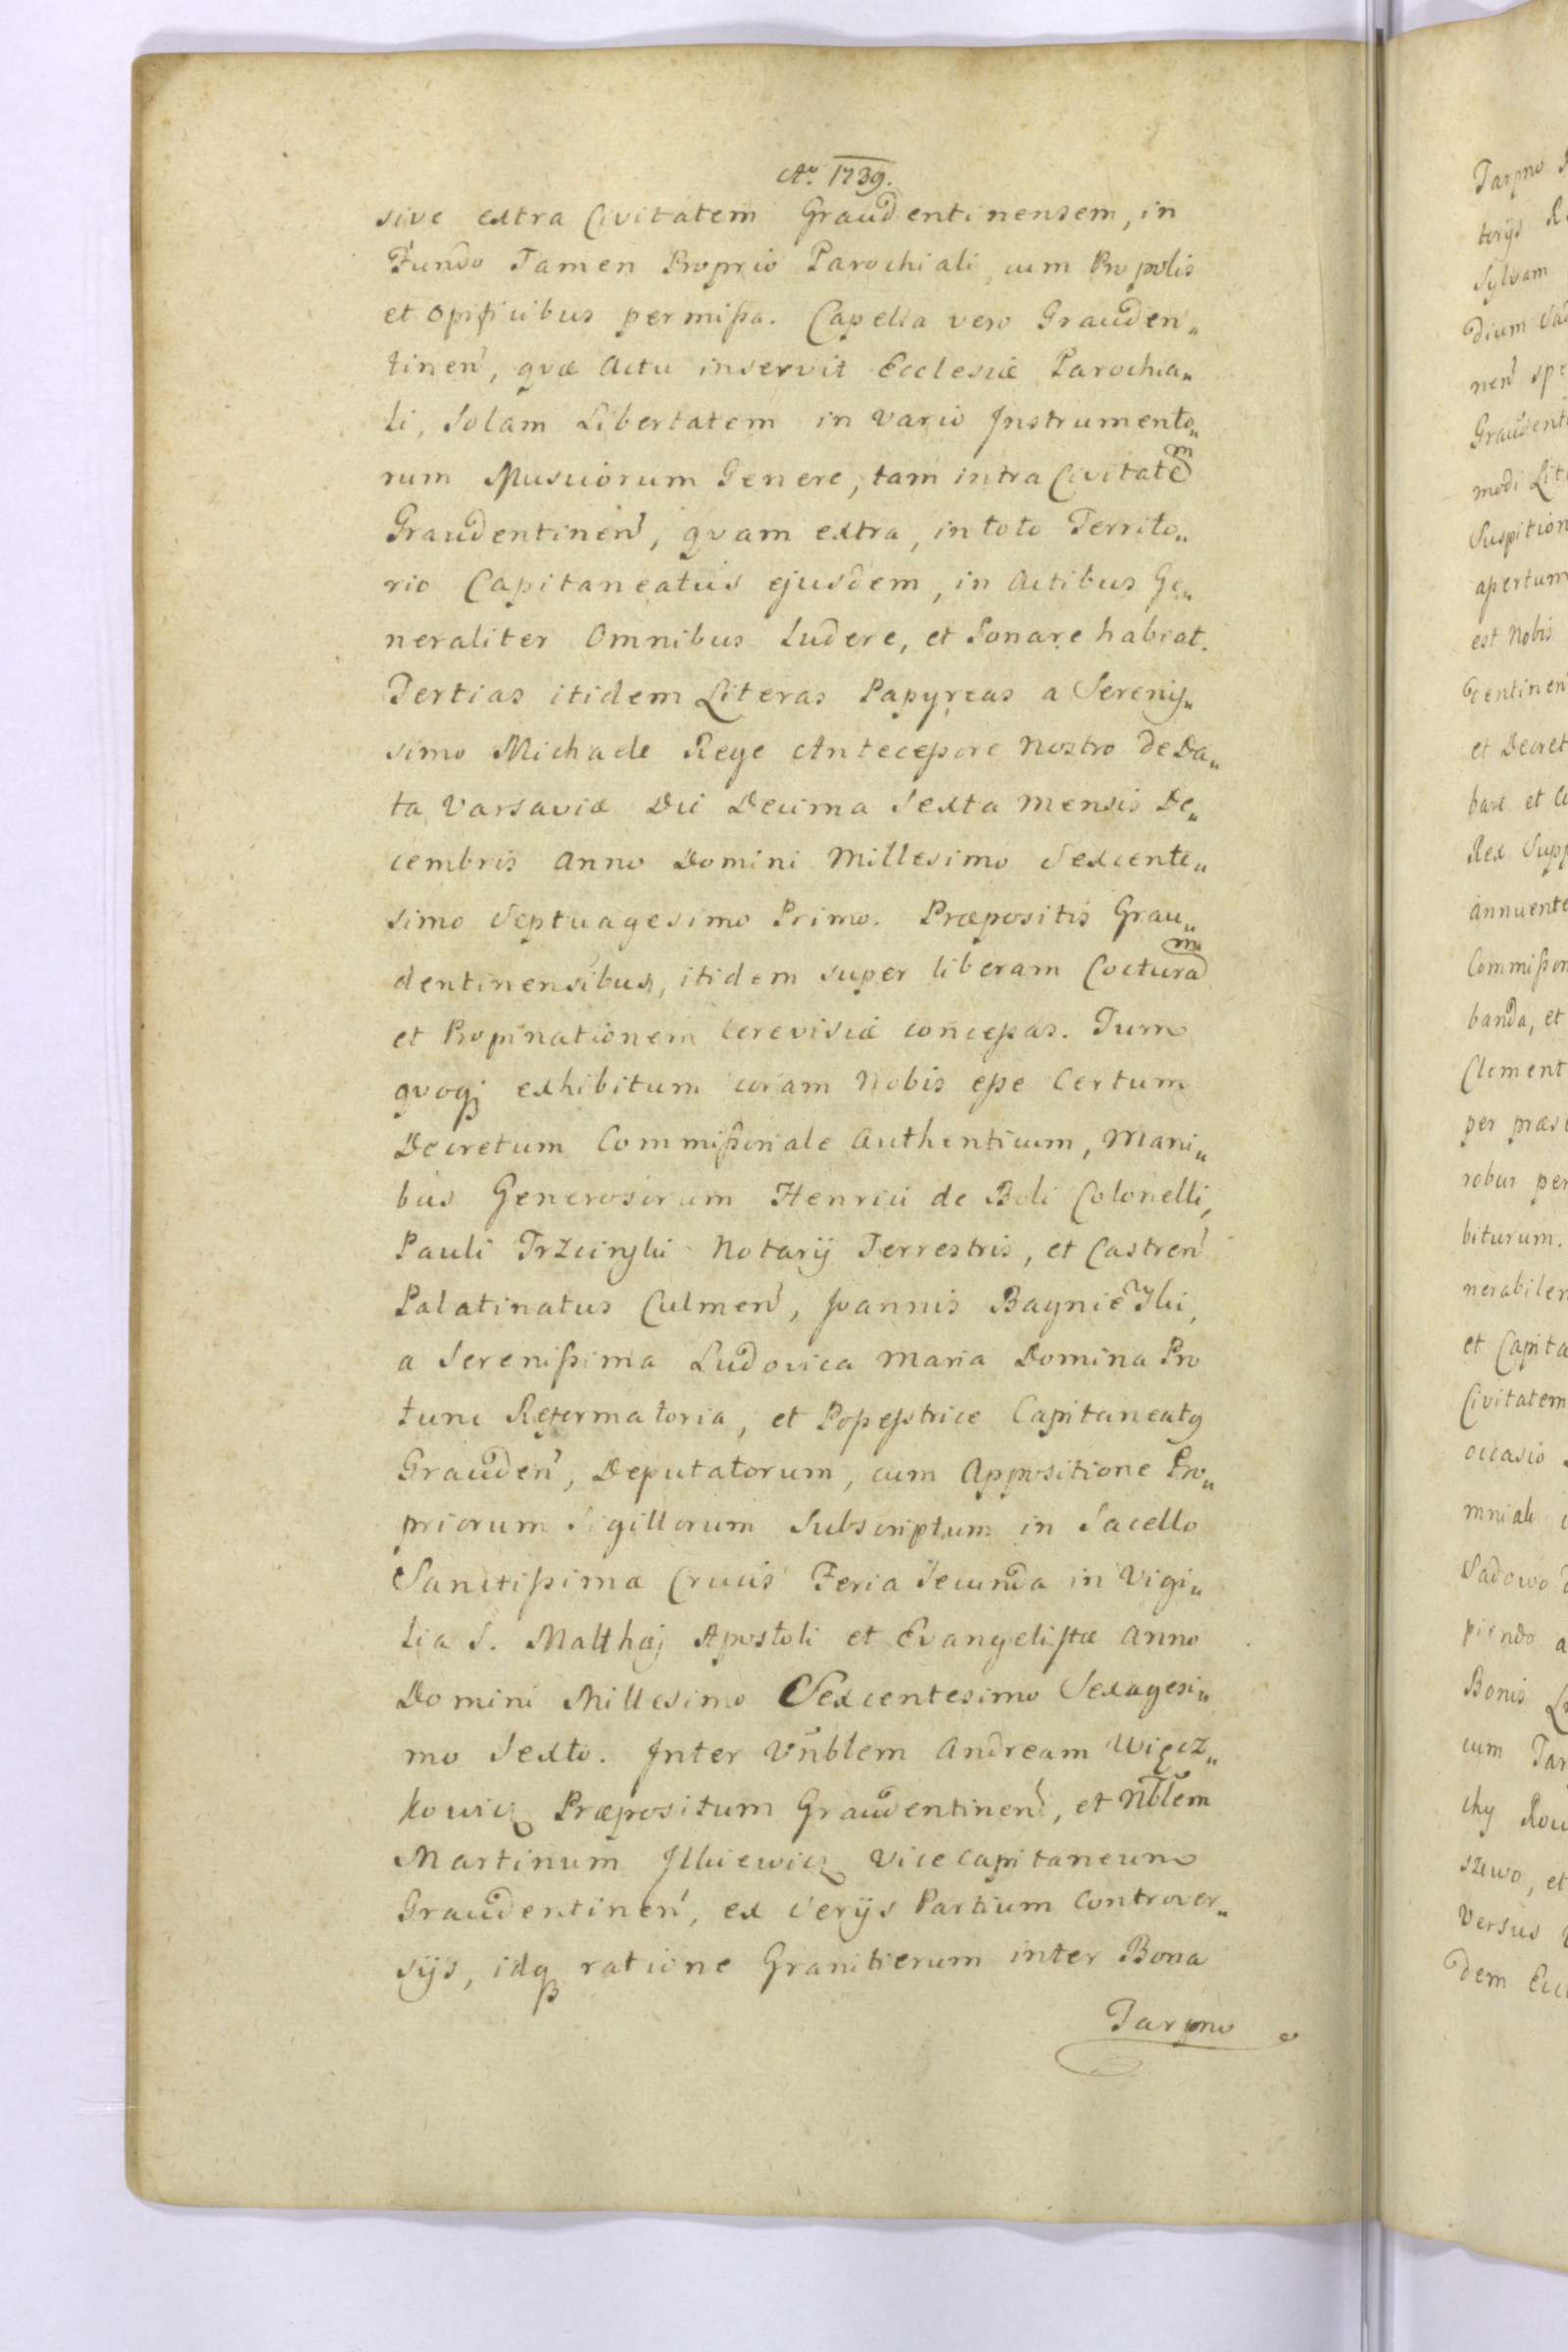 Ao. 1739.
sive extra Civitatem Graudentinensem, in
Fundo Tamen Proprio Parochiali, cum Propolis
et Opificibus permißa. Capella vero Grauden„
tinen, quæ Actu inservit Ecclesiæ Parochia„
li, Solam Libertatem in vario Instrumento„
rum Musicorum Genere, tam intra Civitatem
Graudentinen, quam extra, in toto Territo„
rio Capitaneatus ejusdem, in Actibus Ge„
neraliter Omnibus Ludere, et Sonare habeat.
Tertias itidem Literas Papyreas a Serenis„
simo Michaele Rege Anteceßore Nostro de Da„
ta Varsaviæ Die Decima Sexta Mensis De„
cembris Anno Domini Millesimo Sexcente„
simo Septuagesimo Primo. Præpositis Grau„
dentinensibus, itidem super liberam Cocturam
et Propinationem Cerevisiæ conceßas. Tum
quoq; exhibitum coram Nobis eße Certum
Decretum Commißoriale Authenticum, Mani„
bus Generosorum Henrici de Boli Colonelli,
Pauli Trzcinski Notarij Terrestris, et Castren
Palatinatus Culmen, Joannis Baynieski,
a Serenißima Ludovica Maria Domina Pro
tunc Reformatoria, et Poßeßtrice Capitaneatq
Grauden, Deputatorum, cum Appositione Pro„
priorum Sigillorum Subscriptum in Sacello
Sanctißimæ Crucis Feria Secunda in Vigi„
lia S. Matthæj Apostoli et Evangelistæ Anno
Domini Millesimo Sexcentesimo Sexagesi„
mo Sexto. Inter Vnblem Andream Więcz„
kowicz Præpositum Graudentinen, et Nblem
Martinum Ilkiewicz Vice Capitaneum
Graudentinen, ex Serijs Partium Controver„
sijs, idq ratione Granitierum inter Bona
Tarpno